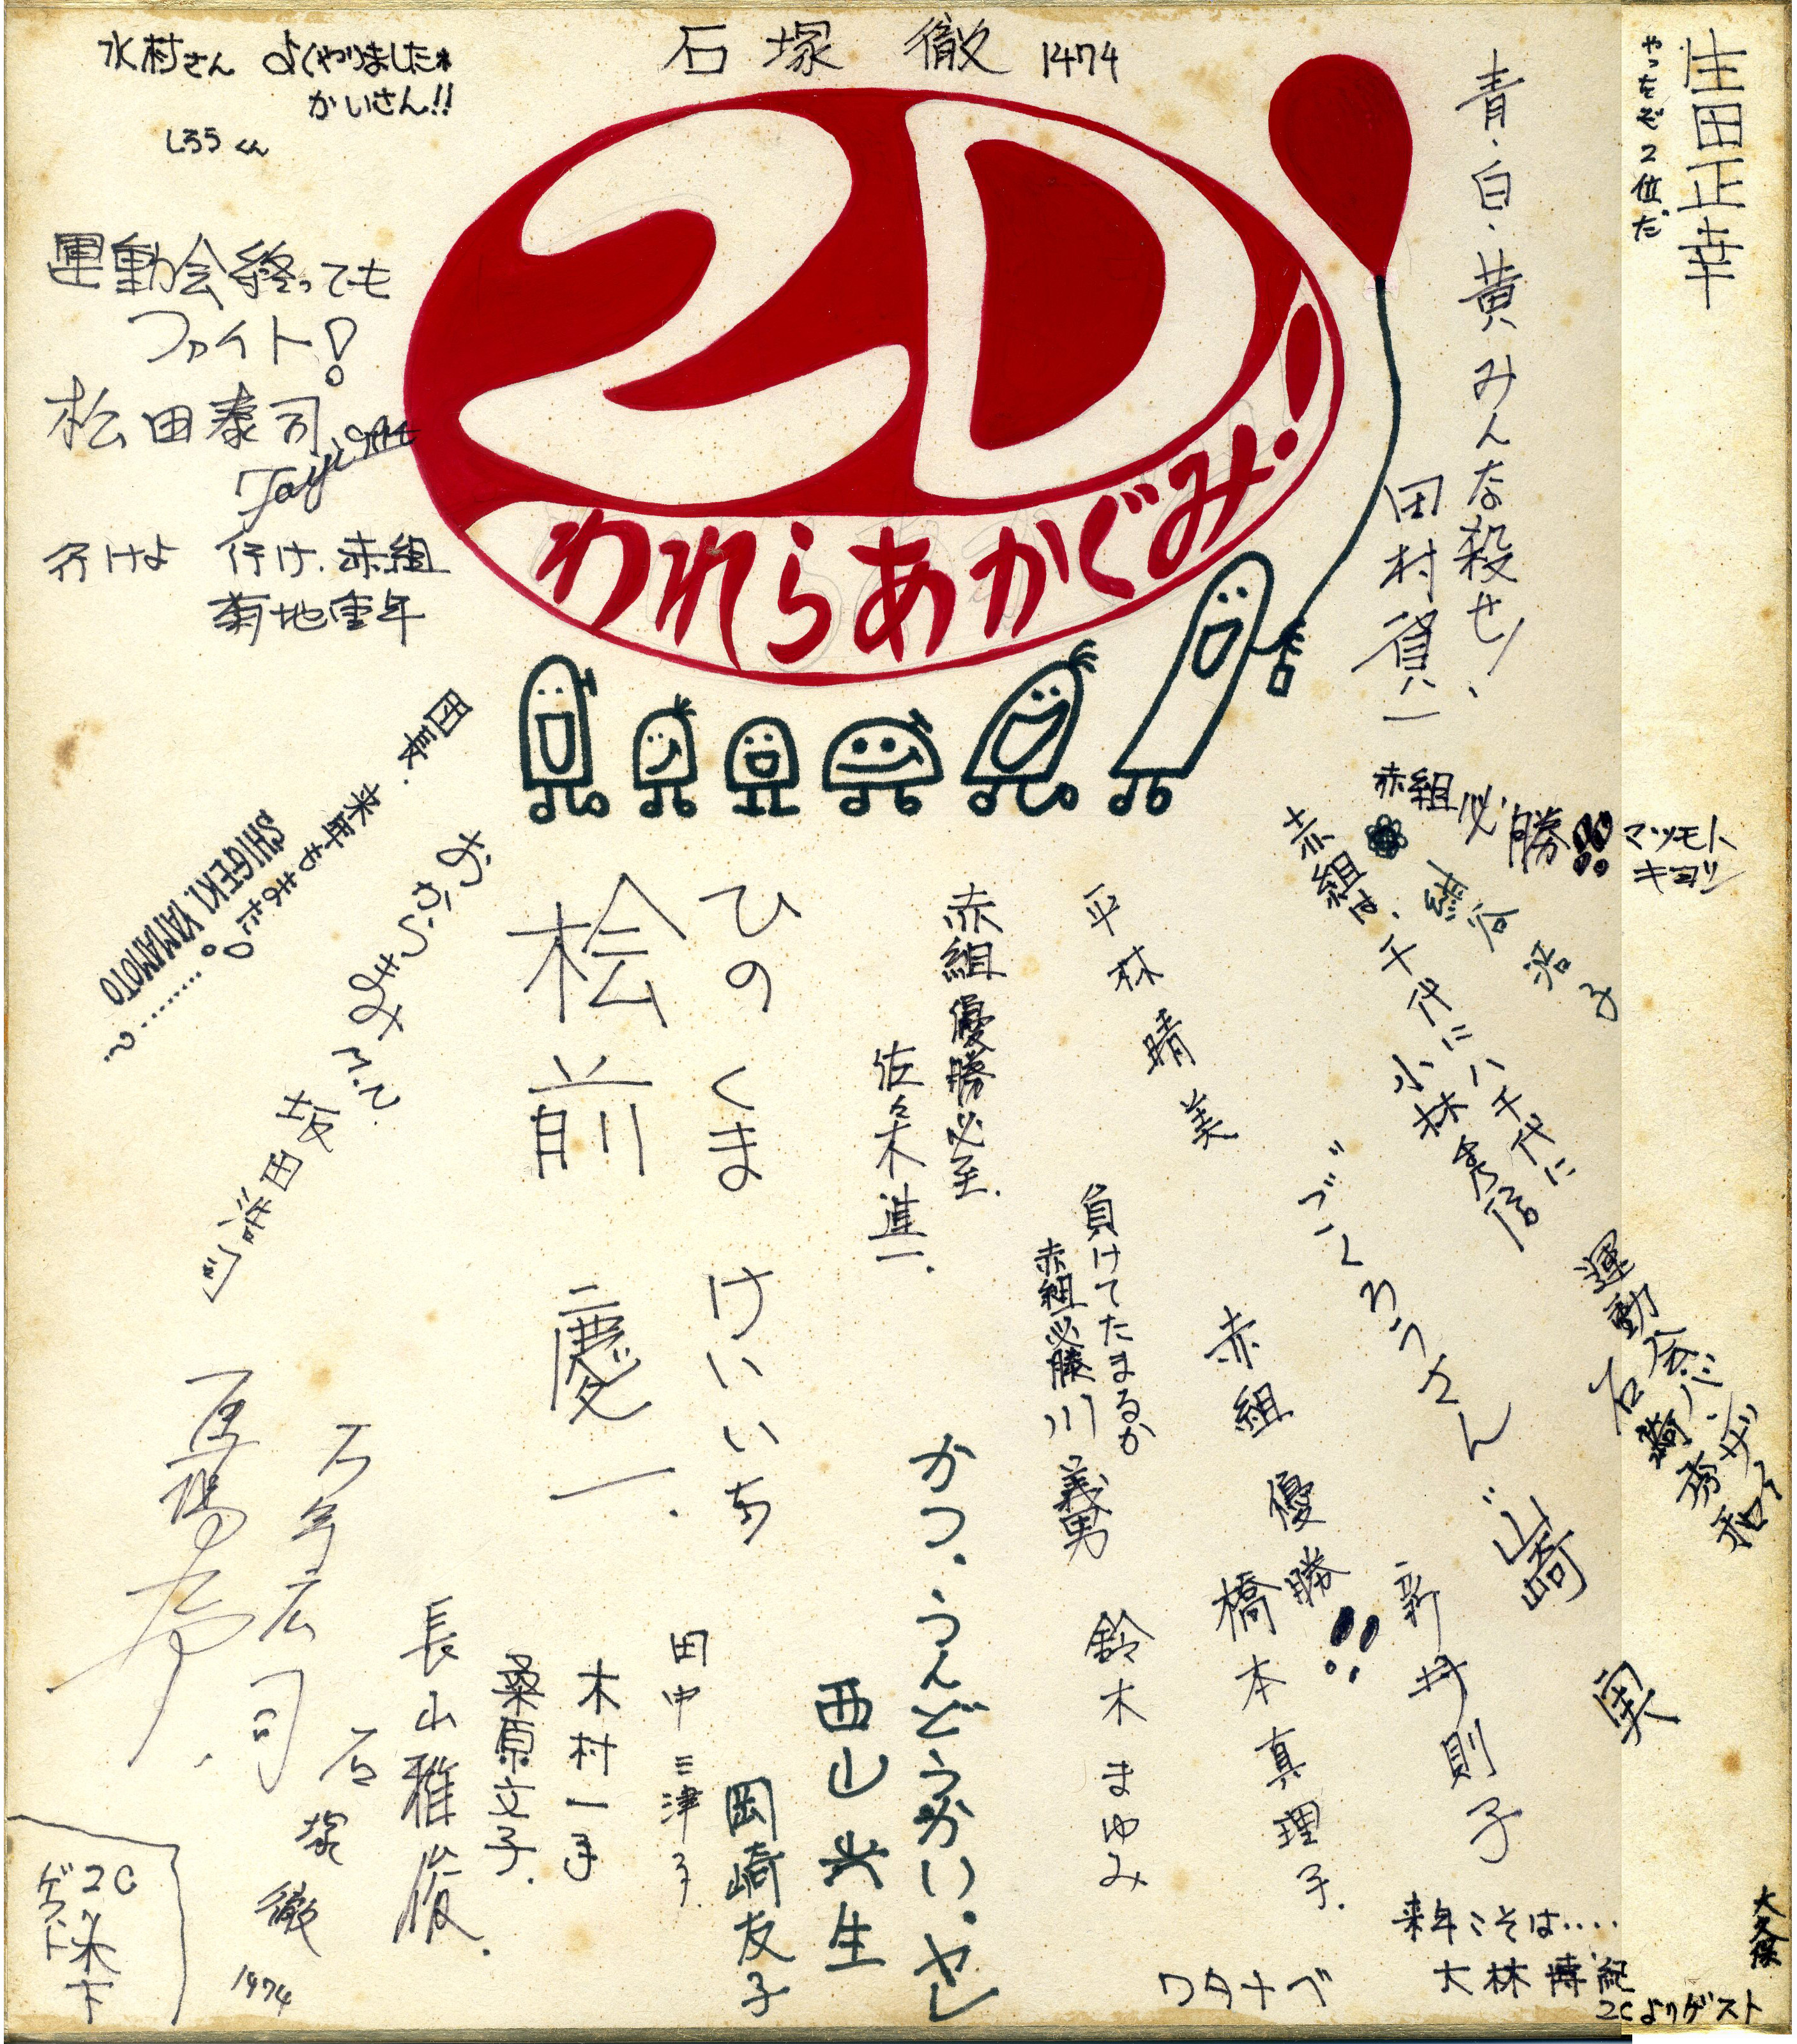 石塚 徹 1974
水村さん よくやりましたね
かいさん!!
しろうくん
2D
われらあかぐみ!
生田正幸
やったぞ2位だ
青・白・黄みんな殺せ!
田村貢一
運動会終っても
ファイト!
松田泰司
行けよ 行け、赤組
菊地重年
団長、来年もまだ!
SHIGEKI YAMAMOTO
坂田浩
赤組必勝!!
マツモト
キヨシ
谷 浩子
赤組は、千代に八千代に
小林秀信
平林晴美
赤組優勝必至.
佐々木進一.
ひのくま けいいち
桧前 慶一.
負けてたまるか
赤組必勝 川 義男
“ごくろうさん”山崎 実
運動会バンザイ
石崎秀和
赤組 優勝!!
橋本真理子.
新井則子
鈴木まゆみ
かつ、うんどうかい、ヤレ
西山共生
岡崎友子
田中三津子.
木村一手
桑原文子.
長山雅俊.
石年広司
石塚 徹 1974
2C
ゲスト 木下
ワタナベ
来年こそは‥‥
大林博紀
2Cよりゲスト
大久保